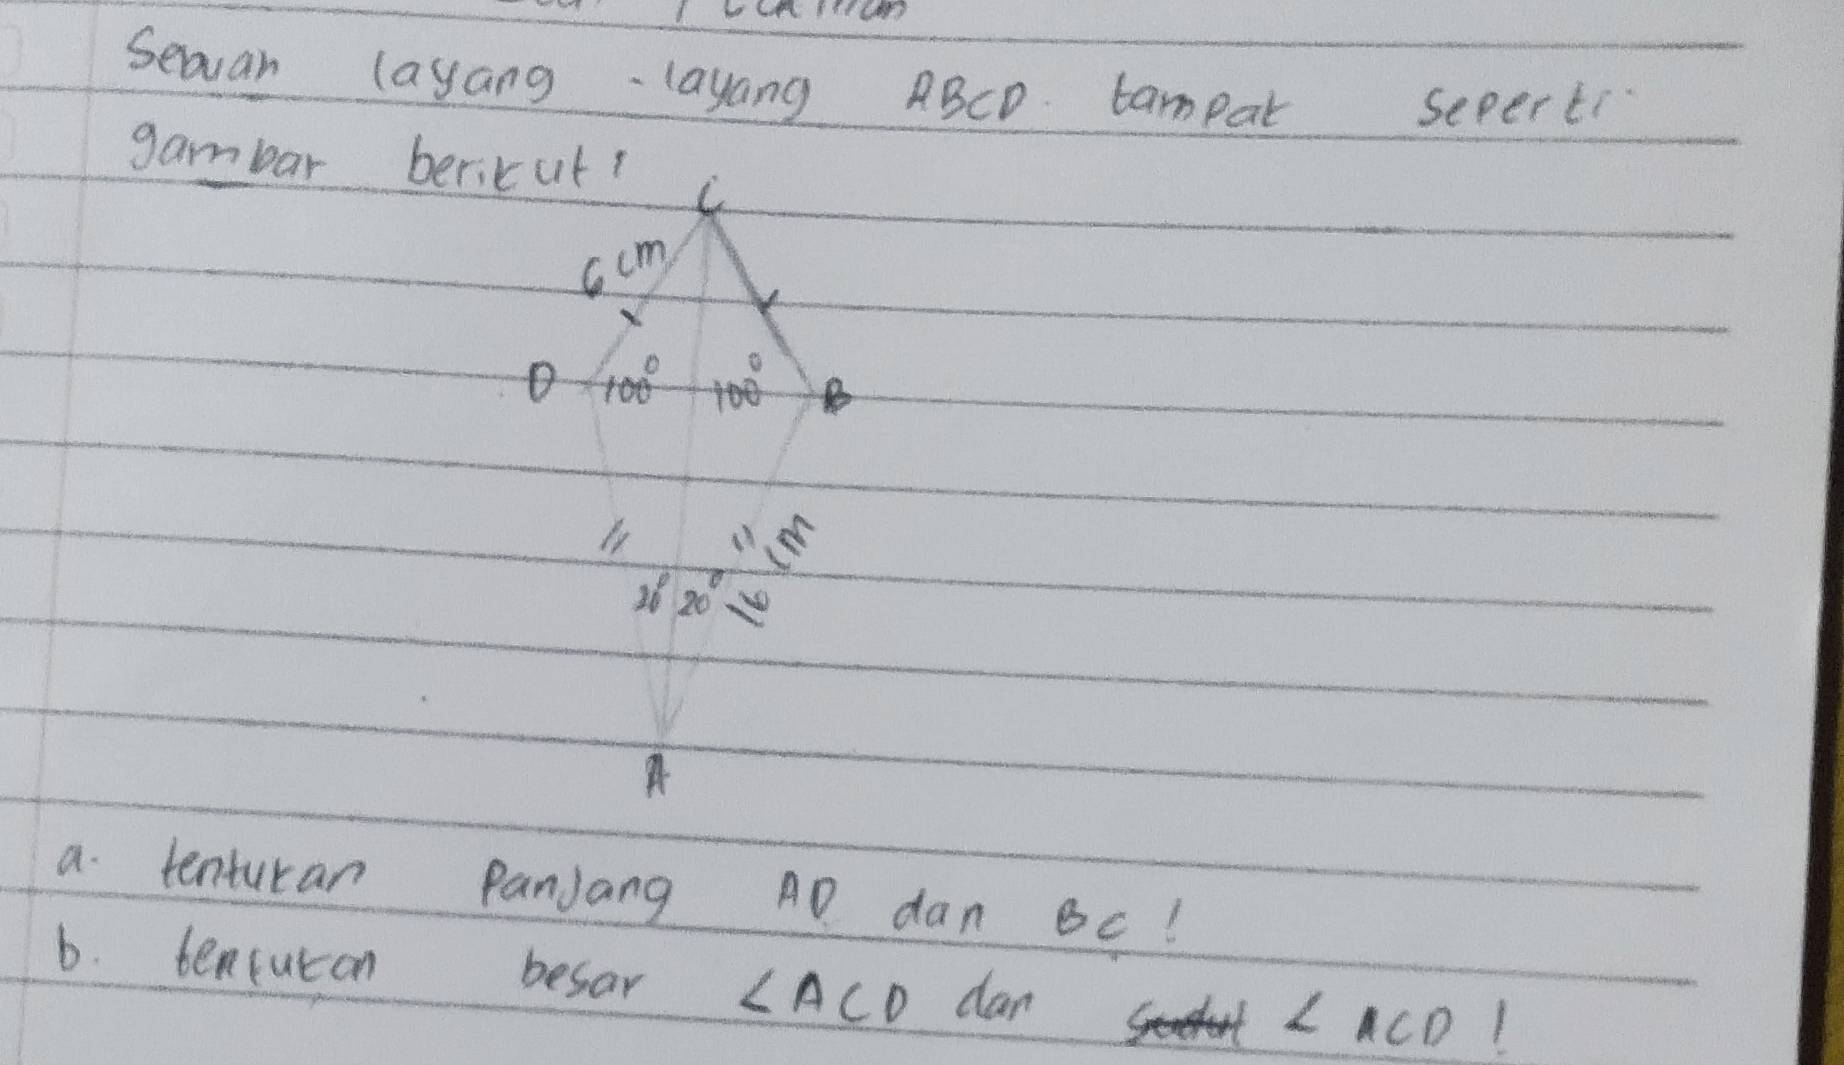 Sebuah layang-layang ABCD tampak seperti
gambar berikut!
C
6 cm
D 100° 100° B
20° 20° 16 cm
A
a. tentukan Panjang AD dan BC!
b. tentukan besar <ACD dan < ACD!